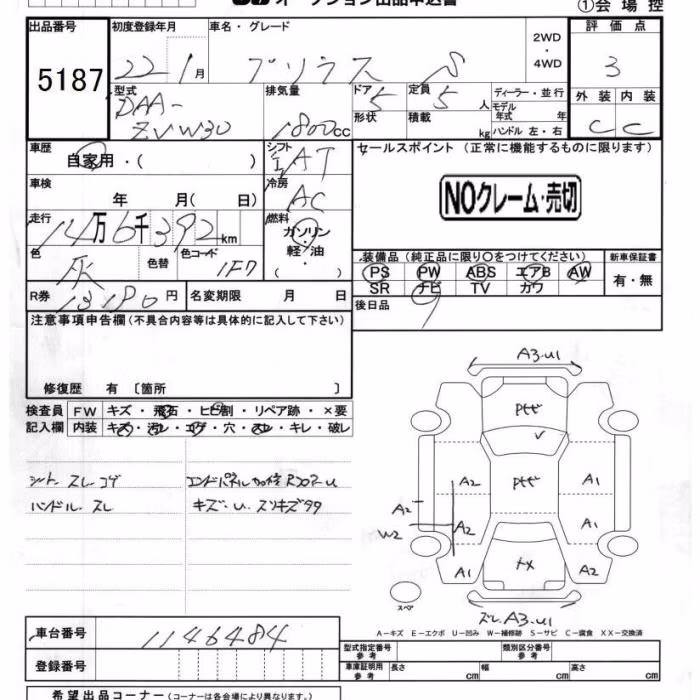 ①会場控
出品番号
5187
初度登録年月
22 1月
車名・グレード
プリウス S
2WD
・
4WD
評価点
3
型式
DAA-
ZVW30
排気量
1800cc
ドア 5
定員 5人
形状
積載 kg
ディーラー・並行
モデル
年式 年
ハンドル 左・右
外装 内装
C C
車歴
自家用・( )
シフト
AT
セールスポイント (正常に機能するものに限ります)
NOクレーム・売切
車検
年 月( 日)
冷房
AC
走行
14万6千392km
燃料
ガソリン・
軽・油
色
灰
色替
色コード
1F7
装備品 (純正品に限り〇をつけてください)
PS PW ABS エアB AW
SR ナビ TV カワ
新車保証書
有・無
R券 13180円
名変期限 月 日
後日品
注意事項申告欄 (不具合内容等は具体的に記入して下さい)
修復歴 有 〔箇所 〕
検査員
記入欄
FW キズ・飛石・ヒビ割・リペア跡・×要
内装 キズ・汚レ・コゲ・穴・スレ・キレ・破レ
シート スレ コゲ
ハンドル スレ
キズ・U・スリキズタタ
A3.U1
A2
A1
A2
W2
A2
A1
A1
A1
A2
スペア
A3.U1
A-キズ E-エクボ U-凹み W-補修跡 S-サビ C-腐食 XX-交換済
車台番号
1146484
登録番号
型式指定番号
参考
類別区分番号
参考
車庫証明用
参考
長さ cm 幅 cm 高さ cm
希望出品コーナー (コーナーは各会場により異なります。)